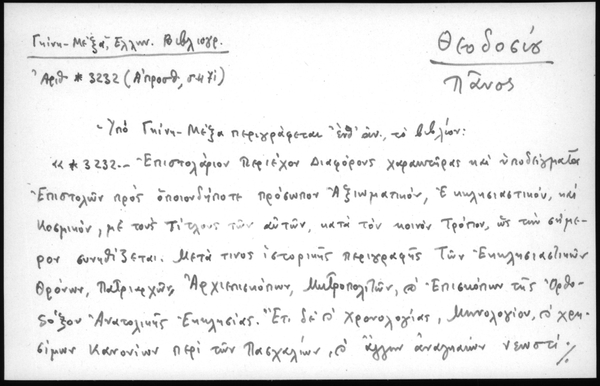 Γκίνη - Μέξα, Ελλην. Βιβλιογρ.
Θεοδοσίου
Ἀριθ * 3232 (Ἀπροσθ,
Πᾶνος
Ὑπό Γκίνη - Μέξα περιγράφεται ἐνθ' ἀν., τό βιβλίον:
«* 3232.- Ἐπιστολάριον Περιέχον Διαφόρους χαρακτῆρας καί ὑποδείγματα
Ἐπιστολῶν πρός ὁποιονδήποτε πρόσωπον Ἀξιωματικόν, Ἐκκλησιαστικόν, καί
Κοσμικόν, μέ τούς Τίτλους τῶν αὐτῶν, κατά τόν κοινόν Τρόπον, ὡς τήν σήμε-
ρον συνηθίζεται. Μετά τινος ἱστορικῆς περιγραφῆς Τῶν Ἐκκλησιαστικῶν
Θρόνων, Πατριαρχῶν, Ἀρχιεπισκόπων, Μητροπολιτῶν, Ἐπισκόπων τῆς Ὀρθο-
δόξου Ἀνατολικῆς Ἐκκλησίας. Ἔτι δέ Χρονολογίας, Μηνολογίου, χρη-
σίμων Κανονίων περί τῶν Πασχαλίων, ἄλλων ἀναγκαίων νεωστί